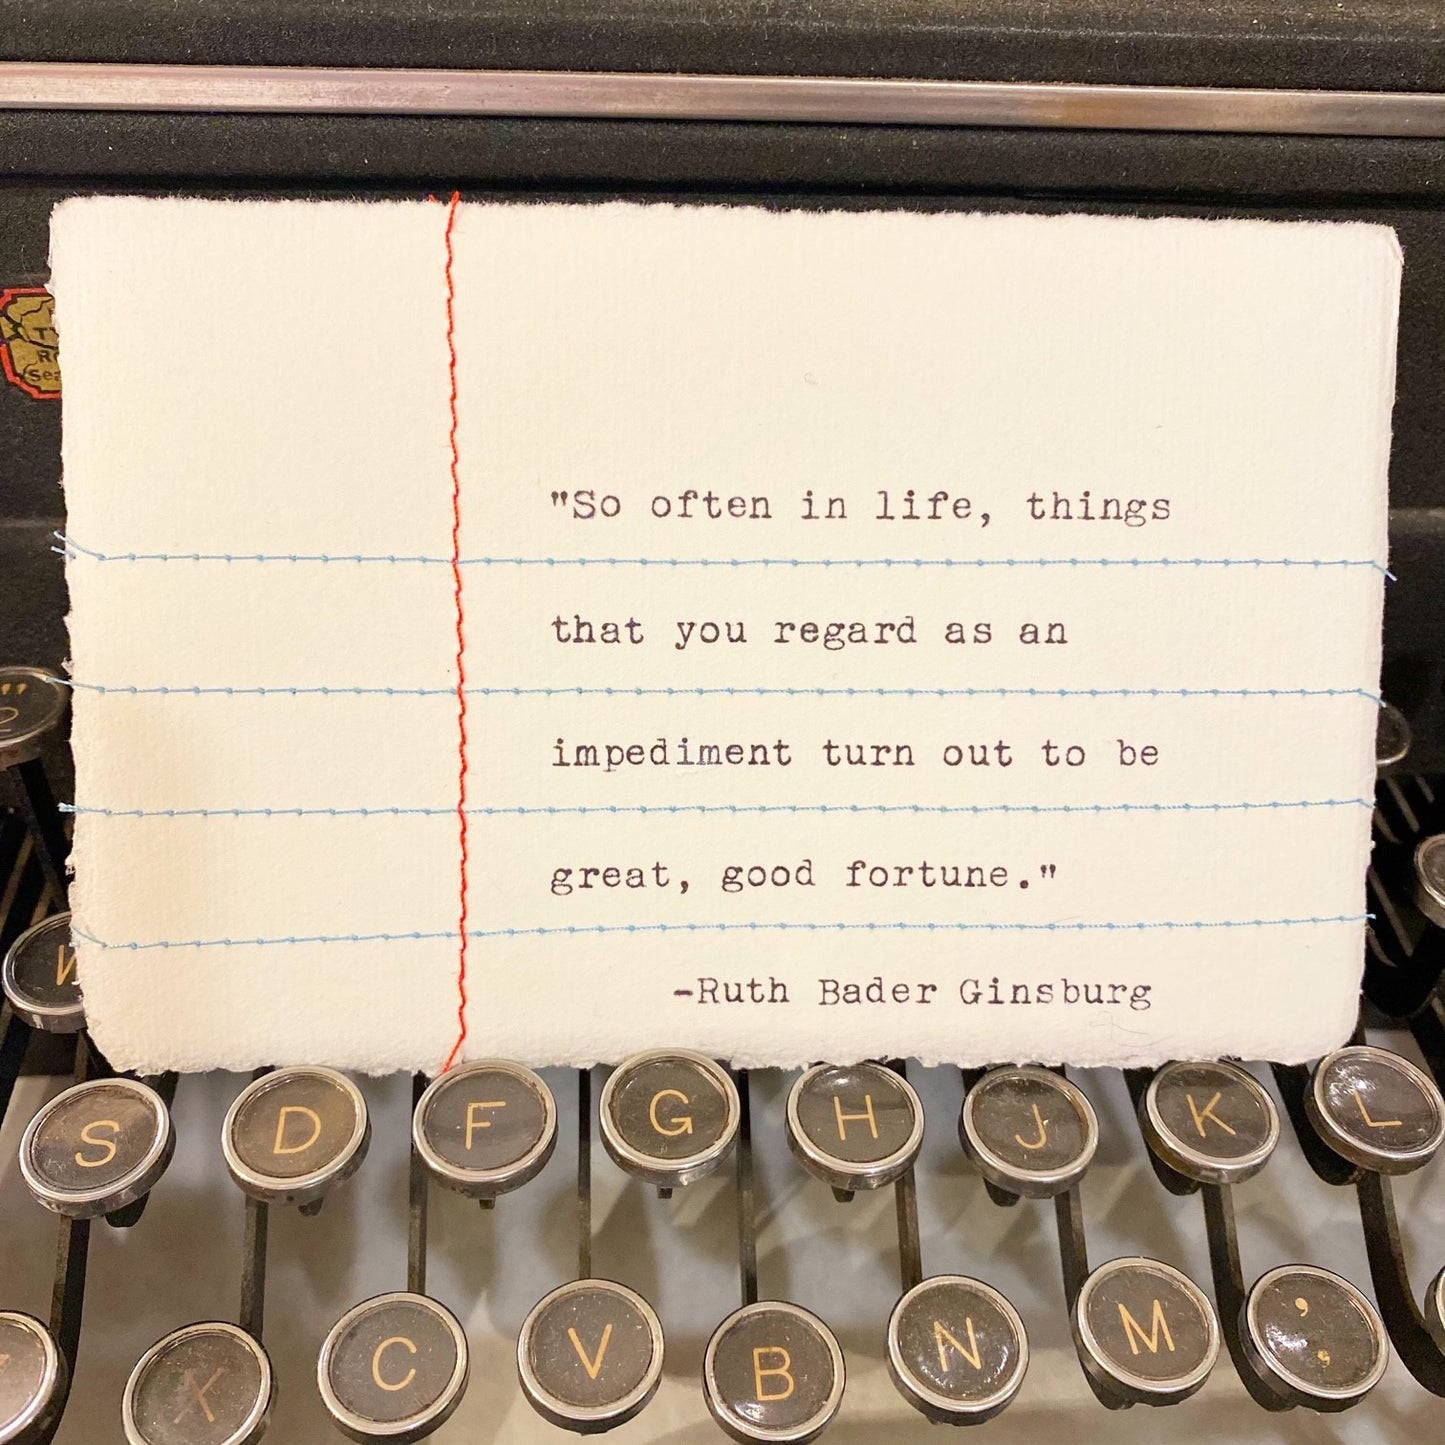 "So often in life, things
that you regard as an
impediment turn out to be
great, good fortune."
-Ruth Bader Ginsburg
S D F G H J K L
X C V B N M , ;